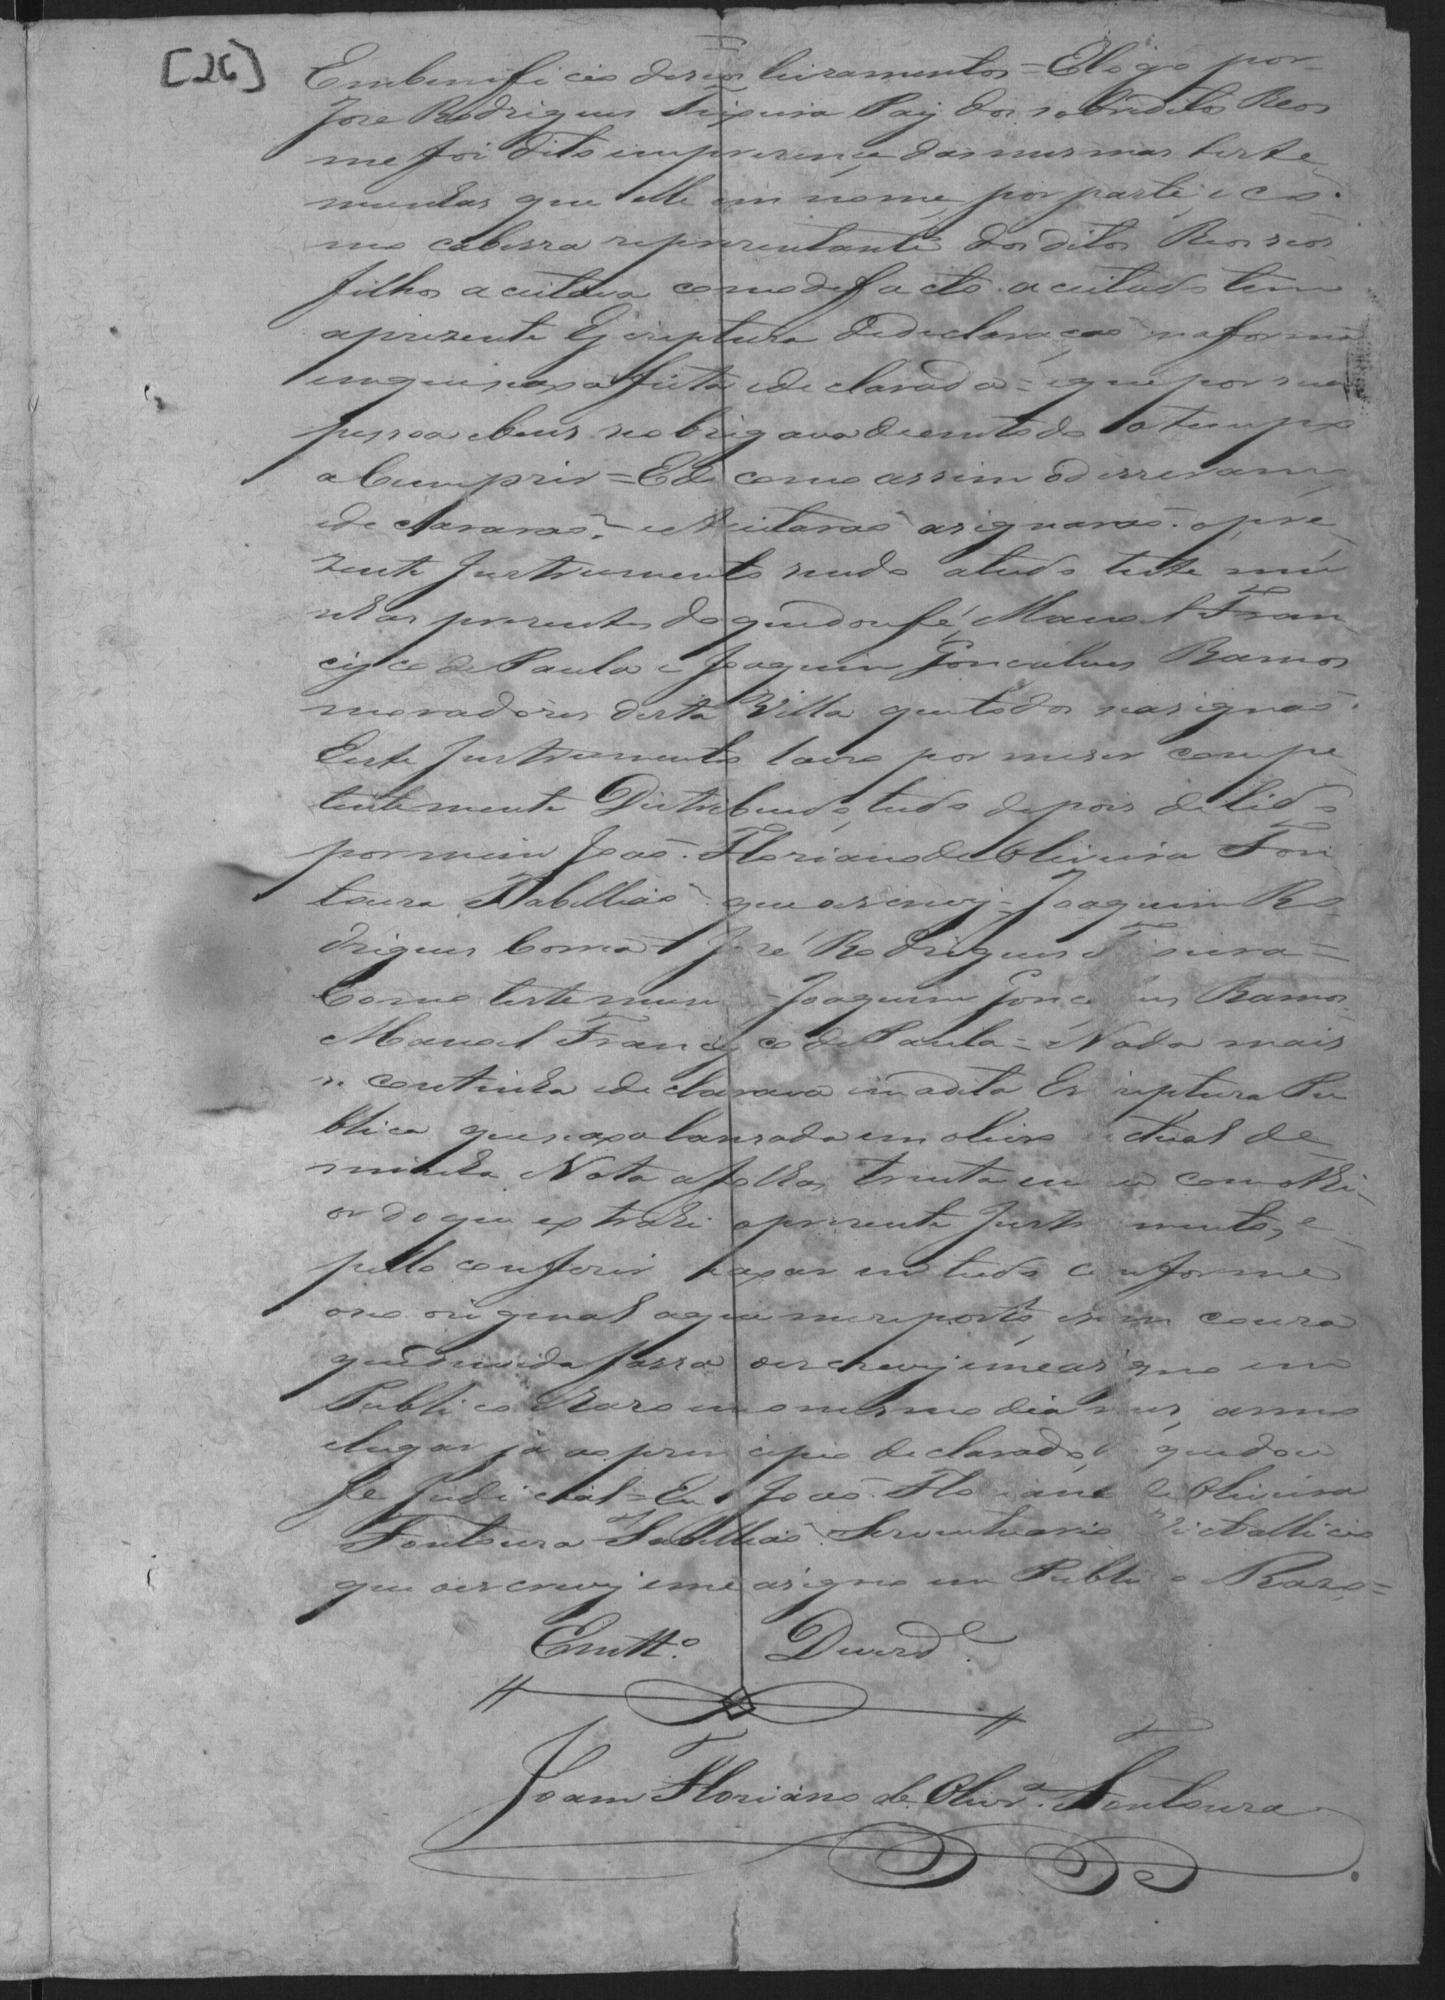 [26]
Embenificio deseos livramentos = E logo por
Jose Rodrigues Teixeira Pay dos sobreditos Reos
me foi dito em prezença das mesmas teste
munhas que elle em nome, por parte, e co-
mo cabessa reprezentante dos ditos Reos seos
filhos aceitava como de facto aceitado tem
aprezente Escriptura de declaração na forma
em que se axa feita e declarada = e que por sua
pessoa e bens se obrigava de em todo o tempo
a Cumprir = E de como assim o disseram,
e declararaõ, e aceitaraõ asignaraõ o pre
zente Instrumento sendo atudo teste mu
nhas prezentes de que dou fé, Manoel Fran
cisco de Paula e Joaquim Gonçalves Ramos
moradores desta Villa que todos se asignaõ.
Este Instrumento lavro por me ser compe
tentemente Distribuido, tudo depois de lido
por mim Joaõ Floriano de Oliveira Fon
toura Tabelliaõ que oescrevy = Joaquim Ro
drigues Correa = José Rodrigues Teixeira =
Como testemunha Joaquim Gonçalves Ramos
Manoel Francisco de Paula = Nada mais
se continha e declarava em adita Escriptura Pu
blica que se axa lansada em o livro actual de
minha Nota a folhas trinta e
or do que extrahi o prezente Instrumento, e
pello conferir e axar em tudo conforme
ao original a que me reporto, e sem couza
que duvida fassa oescrevy e me asigno em
Publico e Razo em o mesmo dia mes, anno
e lugar já ao principio declarado, de que dou
fé Judicial = Eu Joaõ Floriano de Oliveira
Fontoura Tabelliaõ Serventuario Vitallicio
que oescrevy e me asigno em Publico e Razo =
Em tt.º Verd.e
Joam Floriano de Olivr.a Fontoura